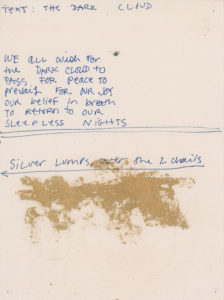 TEXT: THE DARK CLOUD
WE All WISH FOR
the DARK CLOUD TO
PASS FOR PEACE TO
PREVAIL FOR OUR JOY
OUR belief in breath
TO RETURN TO OUR
SLEEPLESS NIGHTS
Silver Lumps over the 2 chairs